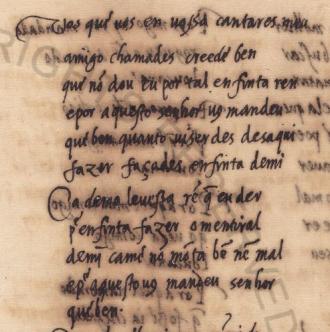 Vos que uos en uossa cantares meu
amigo chamades creede ben
que nõ dou eu por tal enfinta ren
e por aquesto senhor uus mandeu
que ben quanto quiserdes des aqui
fazer façades enfinta de mi
Ca demo leuessa rẽ q̃ eu der
p̃ enfinta fazer o mentiral
demĩ camẽ nõ mõta bẽ nẽ mal
e p̃ aquesto uꝯ mandeu senhor
que ben.